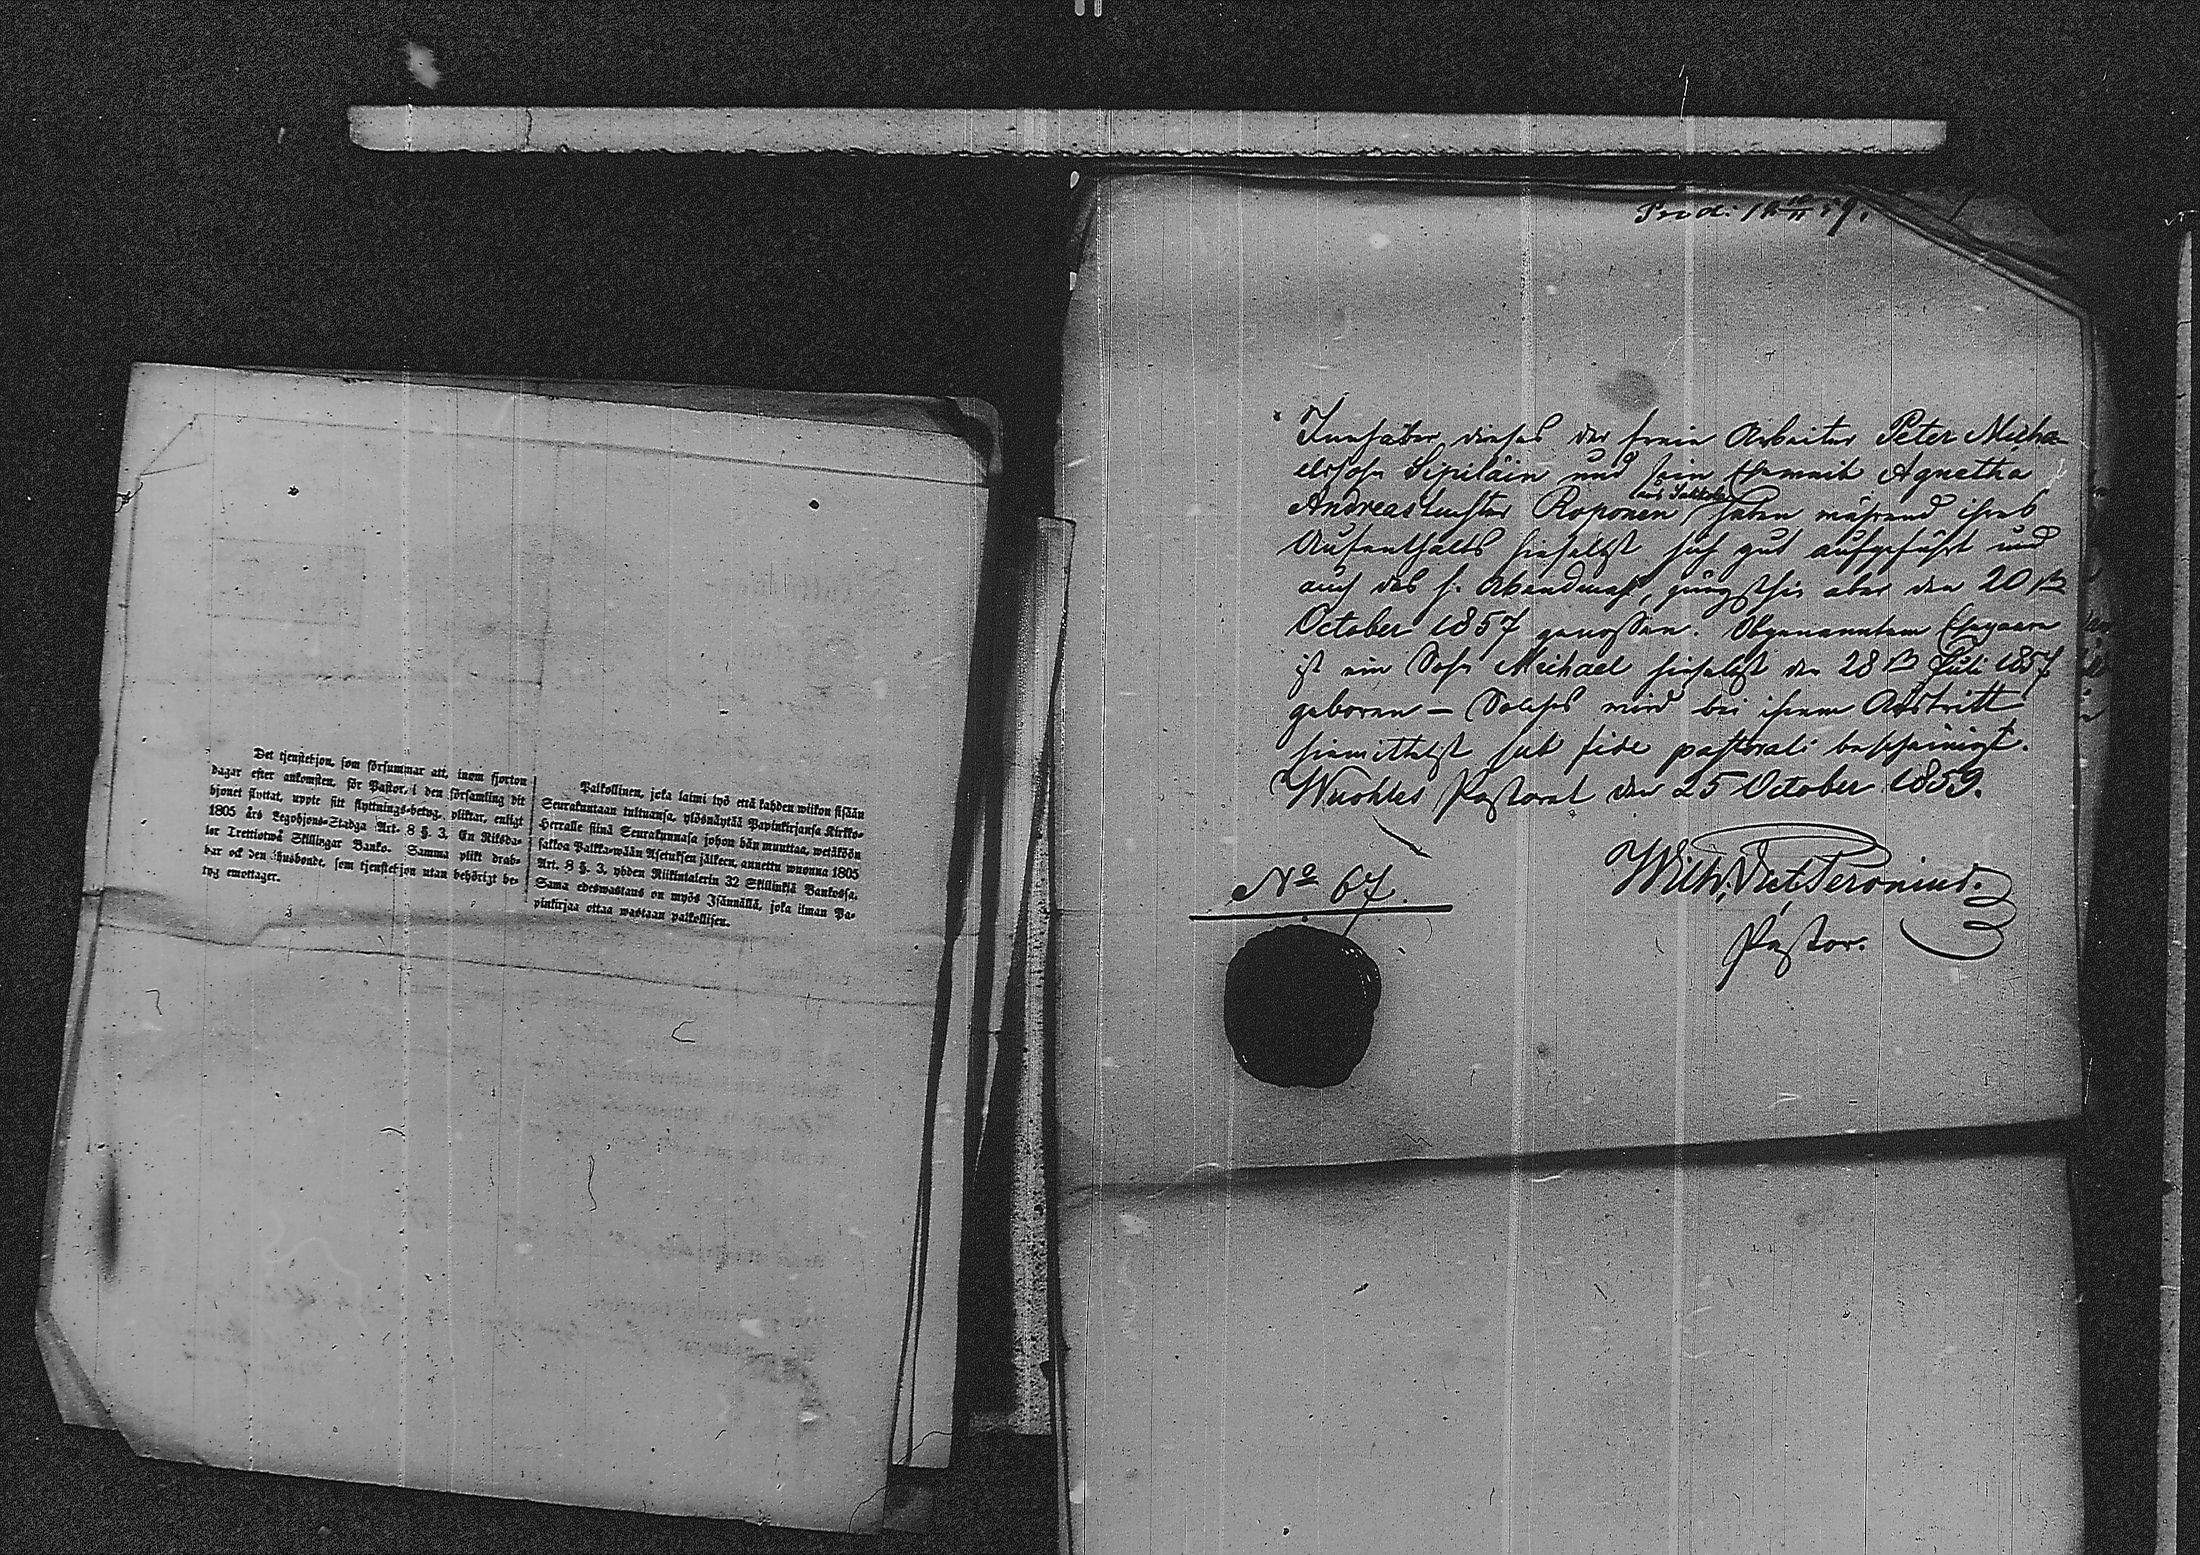 Det tjenstehjon, som försummar att, inom fjorton
dagar efter ankomsten, för Pastor, i den församling dit
hjonet flyttat, uppte sitt flyttnings-betyg, pliktar, enligt
1805 års Legohjons-Stadga Art. 8 §. 3, En Riksda-
ler Trettiotwå Skillingar Banko. Samma plikt drab-
bar ock den husbonde, som tjenstehjon utan behörigt be-
tyg emottager.
Palkollinen, joka laimi lyö että kahden wiikon sisään
Seurakuntaan tultuansa, ylösnäytää Papinkirjansa Kirkko-
Herralle siinä Seurakunnasa johon hän muuttaa, wetäköön
sakkoa Palkka-wään Asetuksen jälkeen, annettu wuonna 1805
Art. 8 §. 3, yhden Riikintalerin 32 Skillinkiä Bankossa.
Sama edeswastaus on myös Isännällä, joka ilman Pa-
pinkirjaa ottaa wastaan palkollisen.
Prod:
Innhaber dieses der freie Arbeiter Peter Micha-
elssohn Sepiläin und sein Eheweib Agnetha
aus Sakkola
Andreastochter Roponen haben während ihres
Aufenthalts hieselbst sich gut aufgeführt und
auch das h. Abendmahl, jüngsthin aber den 20
October 1857 genossen. Obgenanntem Ehepaare
ist ein Sohn Michael hieselbst den 28 Juli 1857
geboren — Solches wird bei ihrem Abtritt
hiemittelst sub fide pastorali bescheinigt.
Wuohles Pastorat den 25 October 1859.
Wilh. Peronius.
Pastor.
No 67.